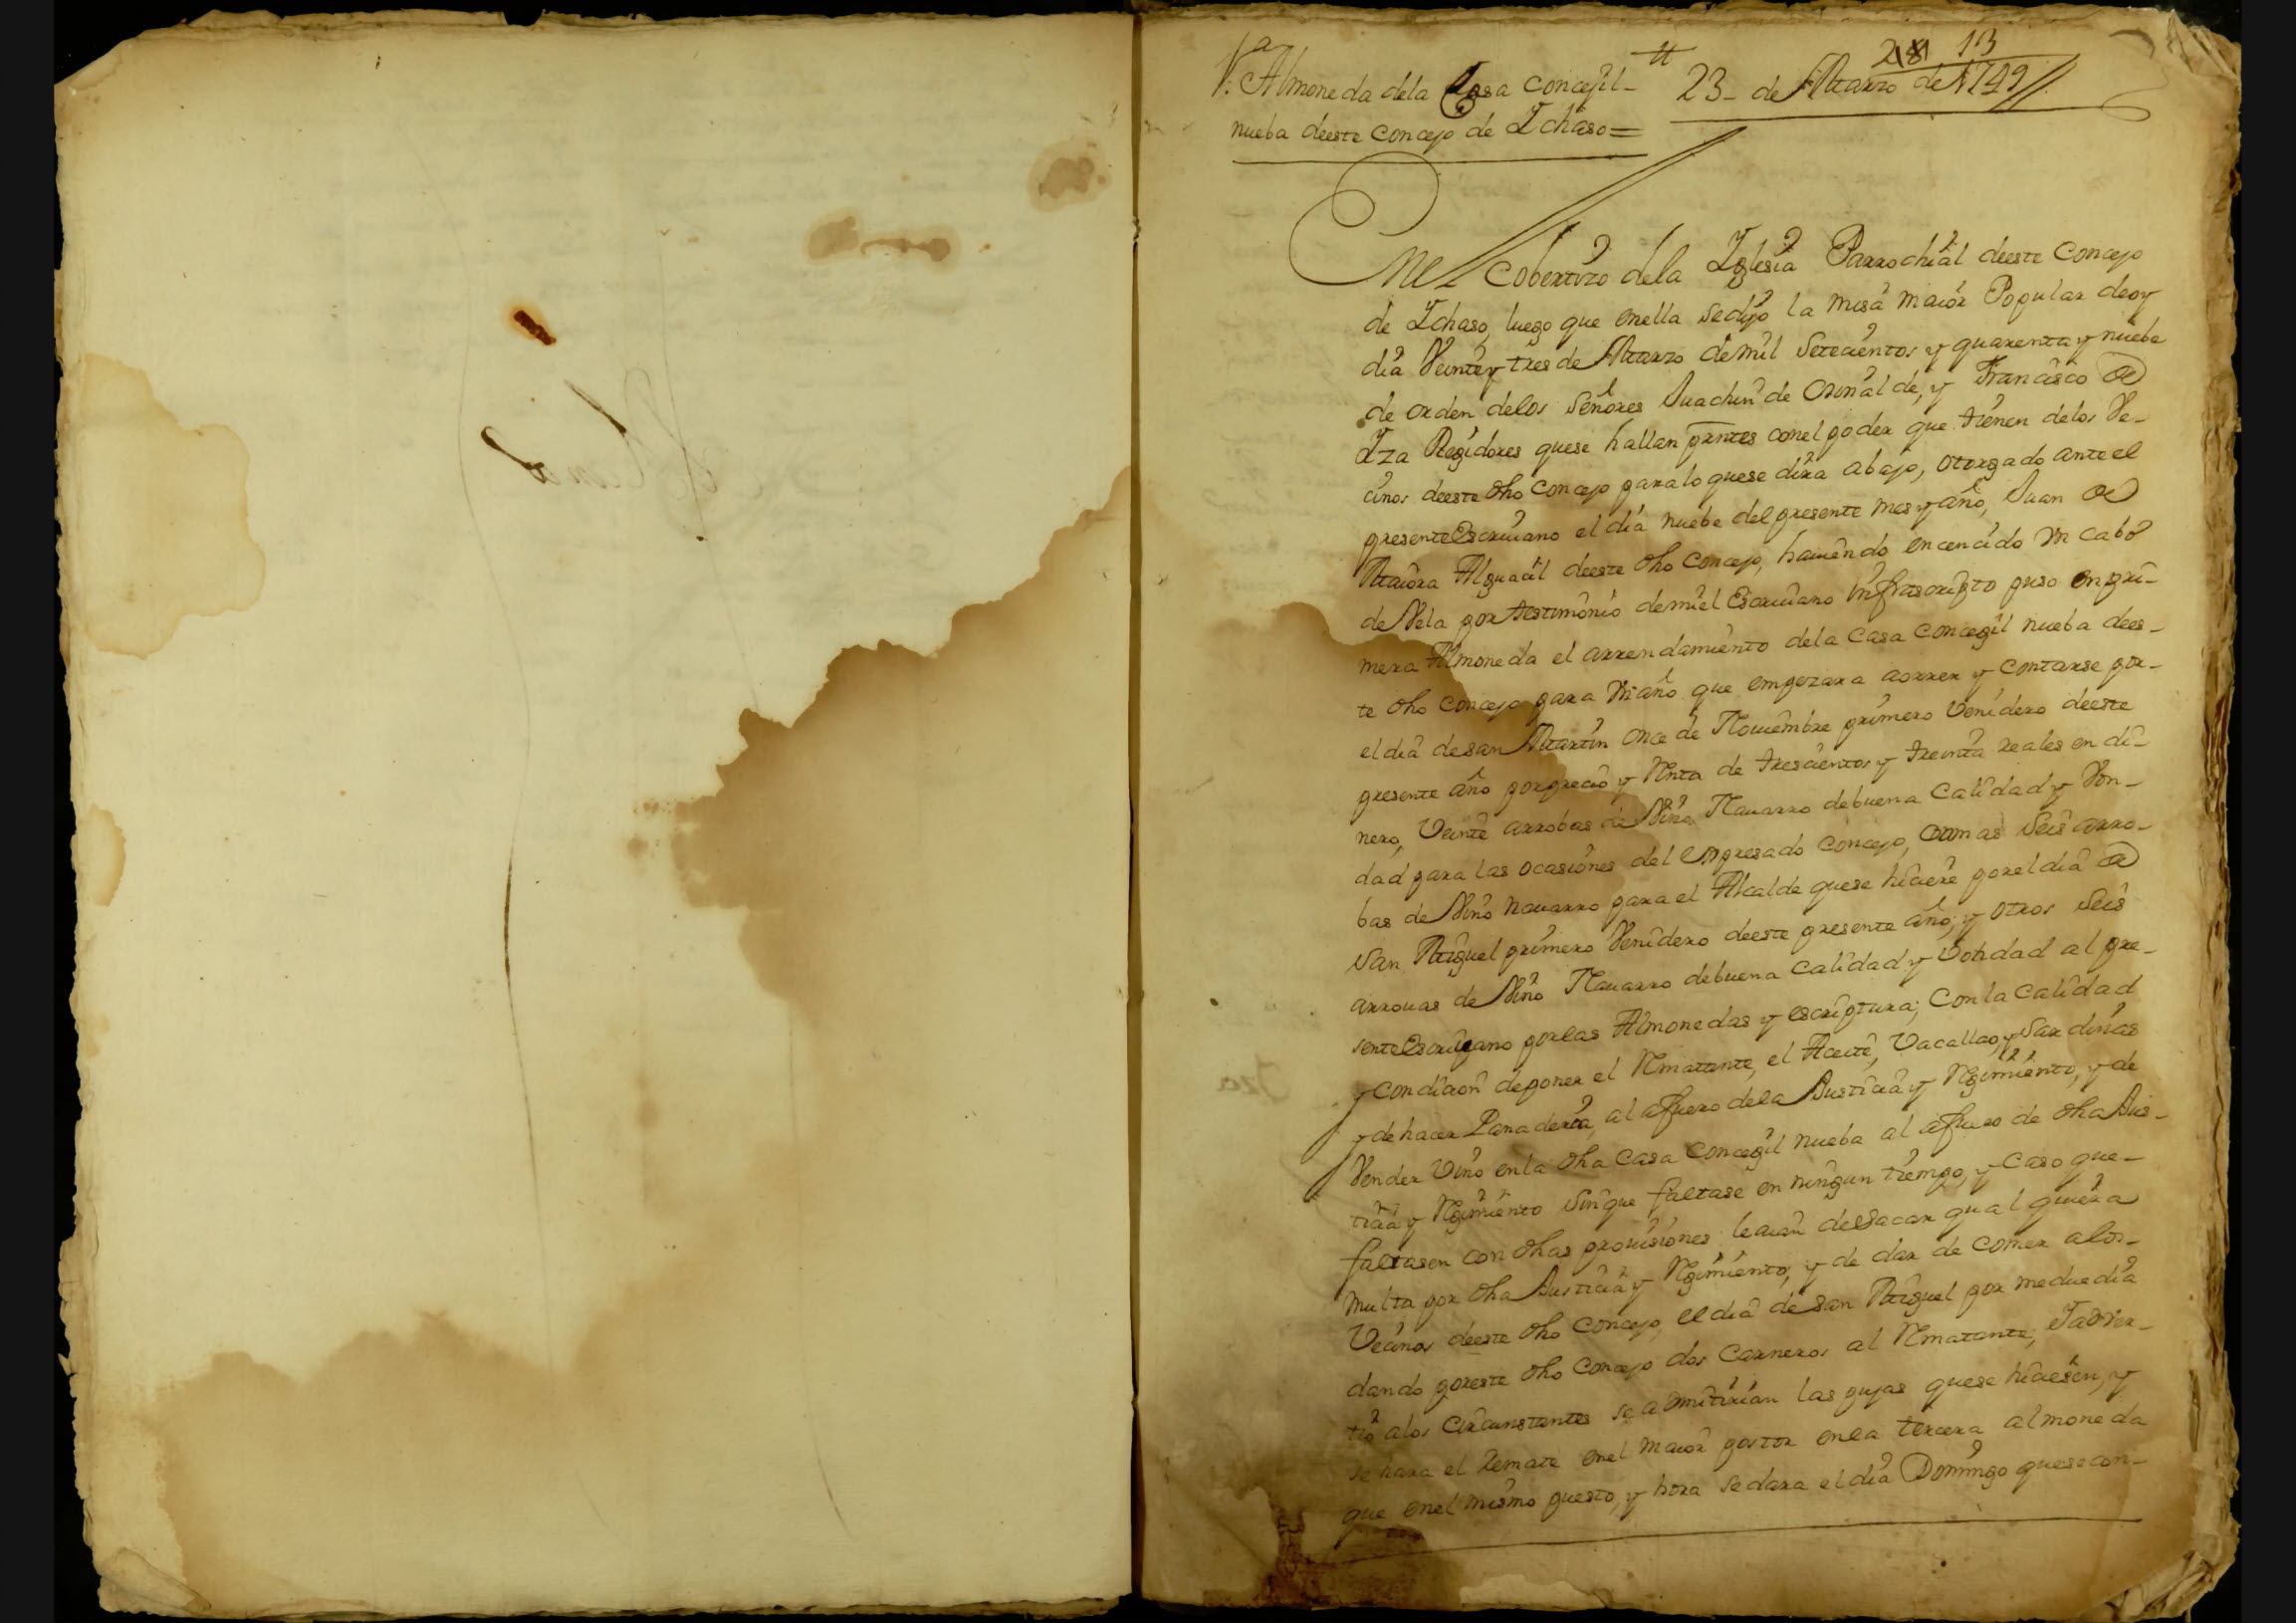 1ª Almoneda dela Casa Concejil-
nueba deeste Concejo de Ichaso=
23- de Marzo de 1749
13
Enel Cobertizo dela Iglesia Parrochial deeste Concejo
de Ichaso, luego que enella sedijo la misa maior Popular deoy
dia Veinte y tres de Marzo demil Setecientos y quarenta y nuebe
de orden delos Señores Juachin de Orinalde, y Francisco de
Iza Regidores quese hallan presntes conel poder que tienen delos Ve-
cinos deeste dho Concejo paralo quese dira abajo, otorgado ante el
presente Escriuano el dia nuebe del presente mes y año, Juan de
Maiora Alguacil deeste dho Concejo, hauiendo encencido Vn cabo
de Vela por testimonio demi el Escriuano Infrascripto puso en pri-
mera Almoneda el arrendamiento dela Casa Concegil nueba dees-
te dho Concejo para Vn año que empezara acorrer y Contarse por-
el dia de san Martin once de Nouiembre primero Venidero deeste
presente año por precio y Renta de trescientos y treinta reales en di-
nero, Veinte arrobas de Vino Nauarro de buena Calidad y Von-
dad para las ocasiones del Expresado Concejo, Otras Seis arro-
bas de Vino nauarro para el Alcalde quese hiciere porel dia de
San Miguel primero Venidero deeste presente año, y otros Seis
arrouas de Vino Nauarro de buena Calidad y Vondad al pre-
sente Escriuano por las Almonedas y escriptura; Con la Calidad
y condicion deponer el Rmatante, el Aceite, Vacallao, y Sardinas
y de hacer Panaderia, al afuero dela Justicia y Rgimiento, y de
Vender Vino enla dha Casa Concegil nueba al afuero de dha Jus-
ticia y Rgimiento Sinque faltase en ningun tiempo, y Caso que-
faltasen con dhas prouisiones leaian desacar qual quiera
multa por dha Justicia y Rgimiento, y de dar de comer alos-
Vecinos deeste dho Concejo, el dia de san Miguel por mediedia
dando poreste dho Concejo dos Carneros al Rmatante; Jadver-
tio alos Circunstantes se admitirian las pujas quese hiciesen, y
se hara el Remate enel maior postor enla tercera almoneda
que enel mismo puesto, y hora sedara el dia Domingo quesecon-